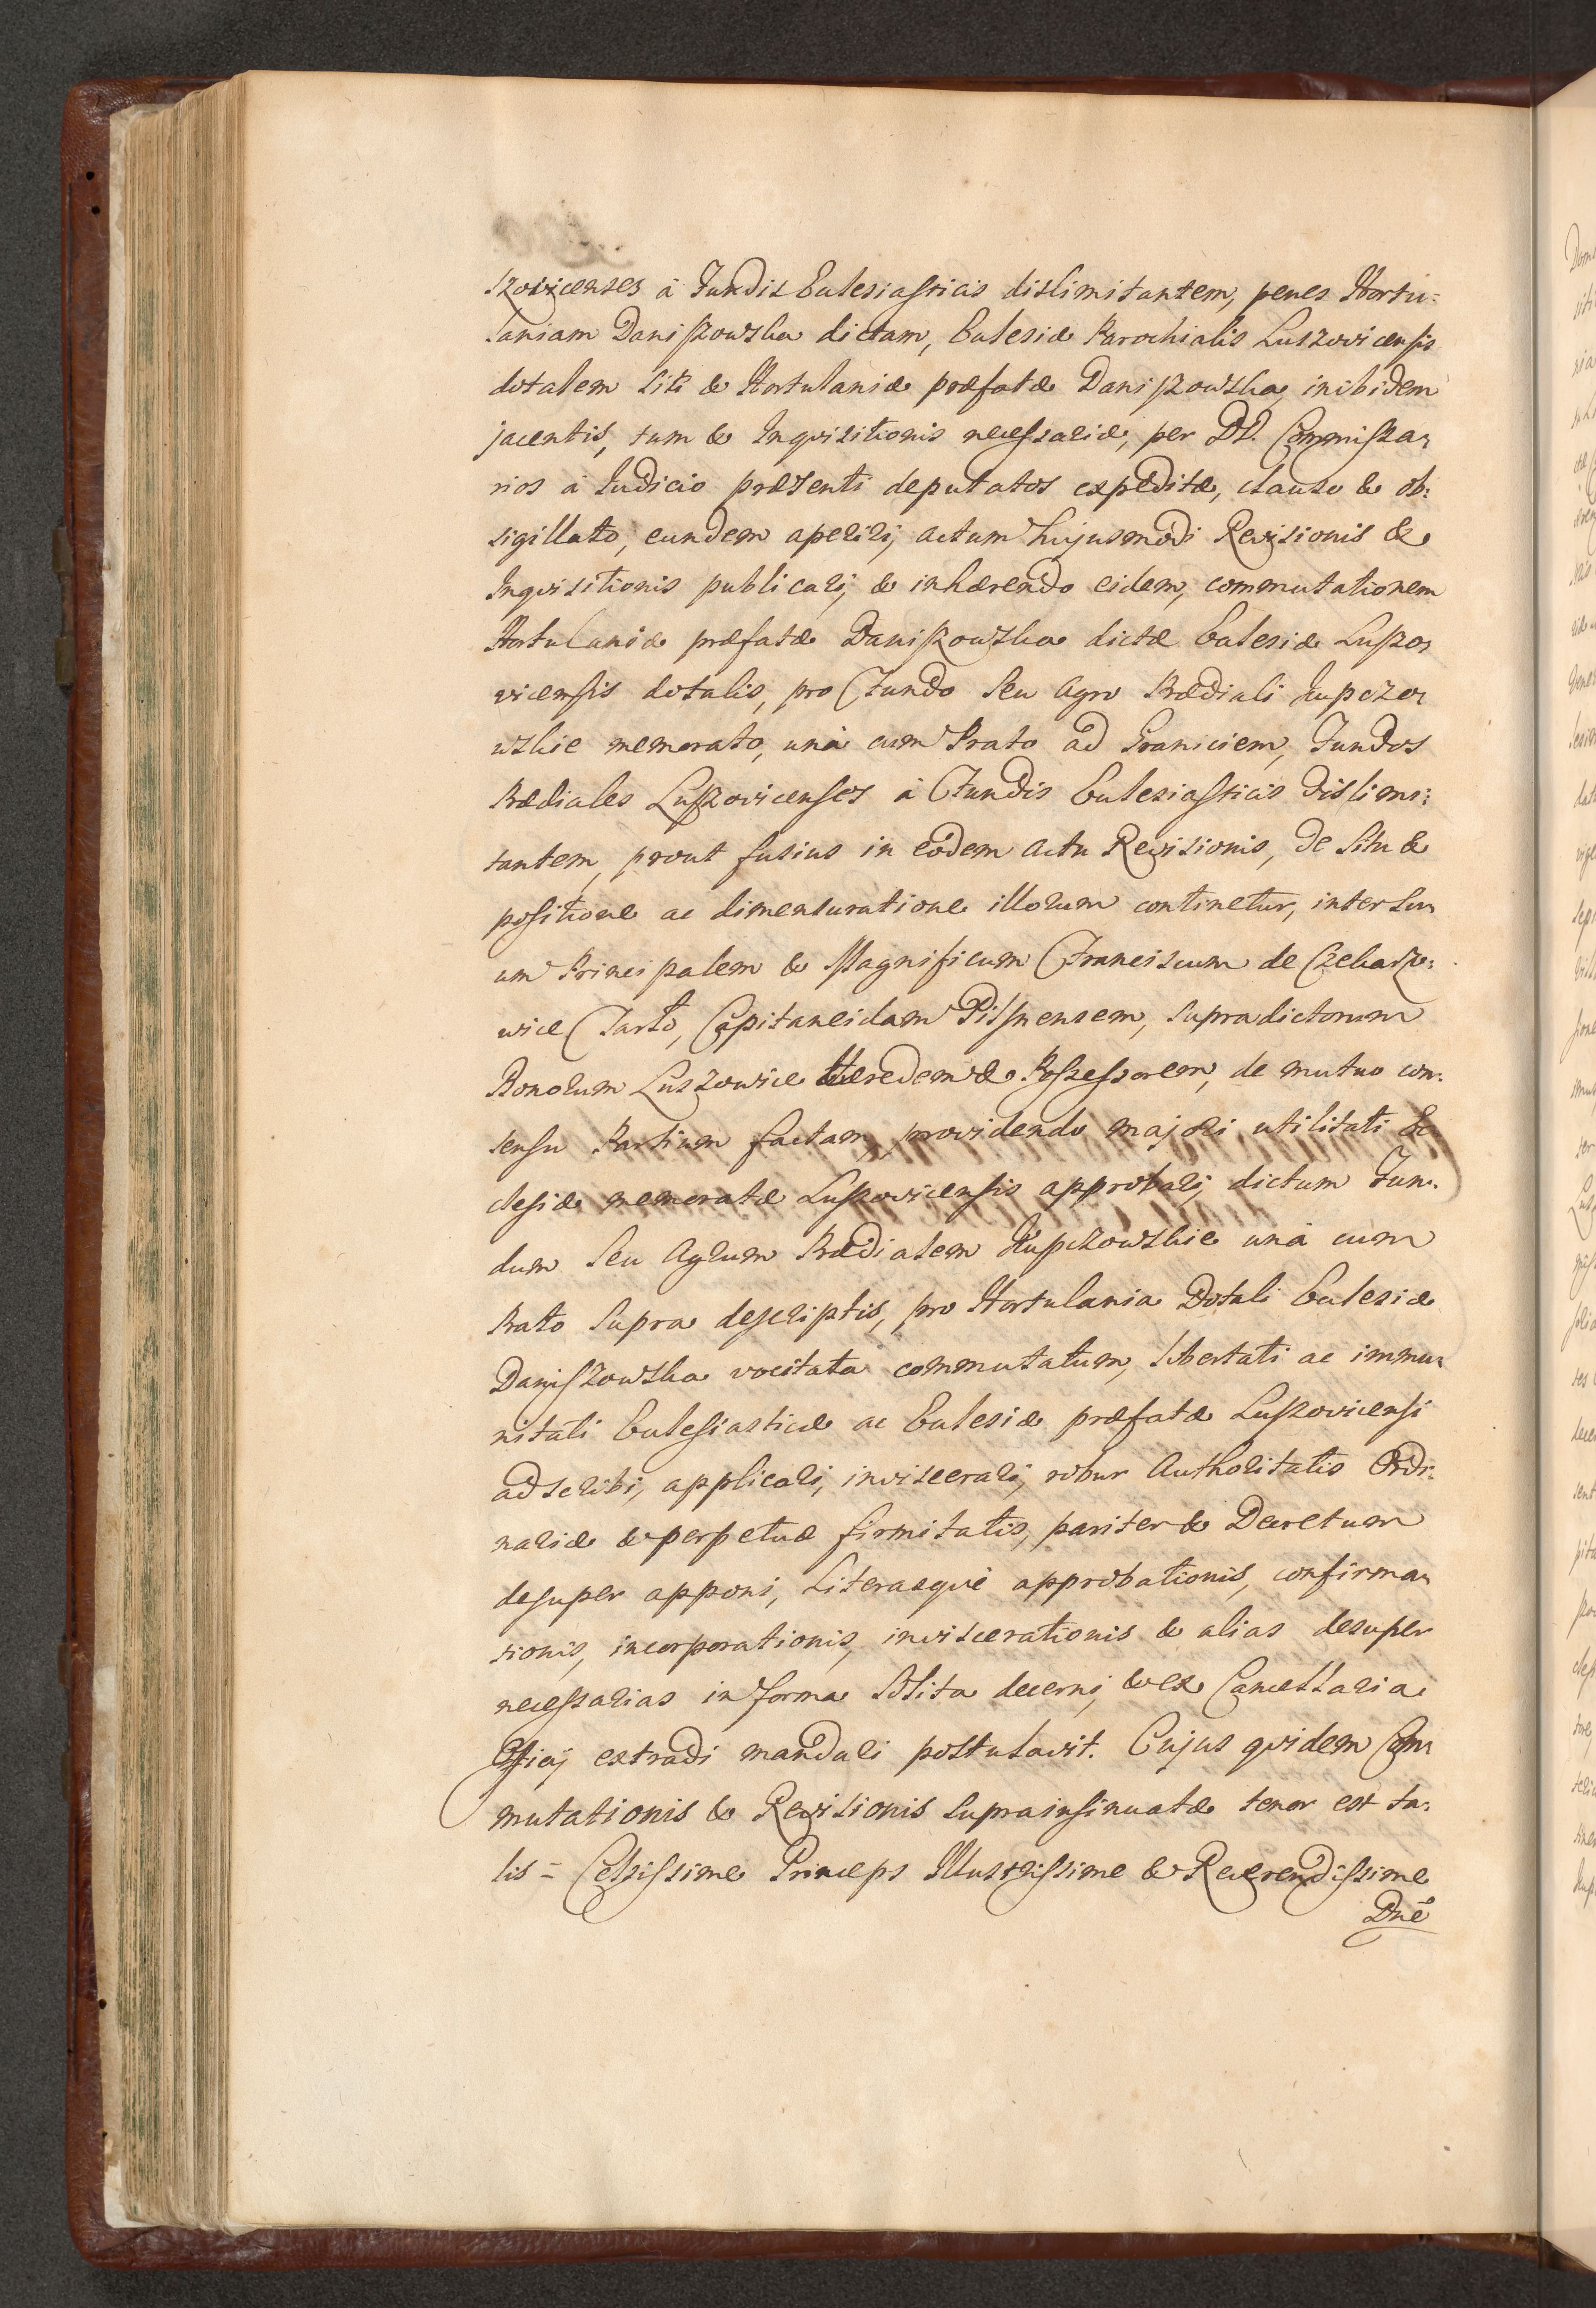 szovicenses à Fundis Ecclesiasticis dislimitantem, penes Hortu:
laniam Daniszowska dictam, Ecclesiæ Parochialis Luszovicensis
dotalem siti & Hortulaniæ præfatæ Daniszowska inibidem
jacentis, tum & Inqvisitionis necessariæ, per DD. Commissa:
rios à Judicio præsenti deputatos expeditæ, clauso & ob:
sigillato, eundem aperiri, actum hujusmodi Revisionis &
Inqvisitionis publicari, & inhærendo eidem, commutationem
Hortulaniæ præfatæ Daniszowska dictæ Ecclesiæ Luszo:
vicensis dotalis, pro Fundo seu Agro Prædiali Kupczo:
wskie memorato, unà cum Prato ad Graniciem, Fundos
Prædiales Luszovicenses à Fundis Ecclesiasticis dislimi:
tantem, prout fusius in eôdem Actu Revisionis, de Situ &
positione ac dimensuratione illorum continetur, inter Su:
um Principalem & Magnificum Franciscum de Czekarzo:
wice Tarło, Capitaneidam Pilsnensem, supradictorum
Bonorum Luszowice Hæredem & Possessorem, de mutuo con:
sensu Partium factam, providendo majori utilitati Ec
clesiæ memoratæ Luszovicensis approbari, dictum Fun:
dum seu Agrum Prædialem Kupczowskie unà cum
Prato supra descriptis, pro Hortulania Dotali Ecclesiæ
Daniszowska vocitata commutatum, libertati ac immu:
nitati Ecclesiasticæ ac Ecclesiæ præfatæ Luszovicensi
adscribi, applicari, inviscerari, robur Authoritatis Ordi:
nariæ & perpetuæ firmitatis, pariter & Decretum
desuper apponi, Literasqvè approbationis, confirma:
tionis, incorporationis, inviscerationis & alias desuper
necessarias in forma solita decerni, & ex Cancellaria
Officij extradi mandari postulavit. Cujus qvidem Com:
mutationis & Revisionis suprainsinuatæ tenor est ta:
lis = Celsissime Princeps Illustrissime & Reverendissime
Dnē